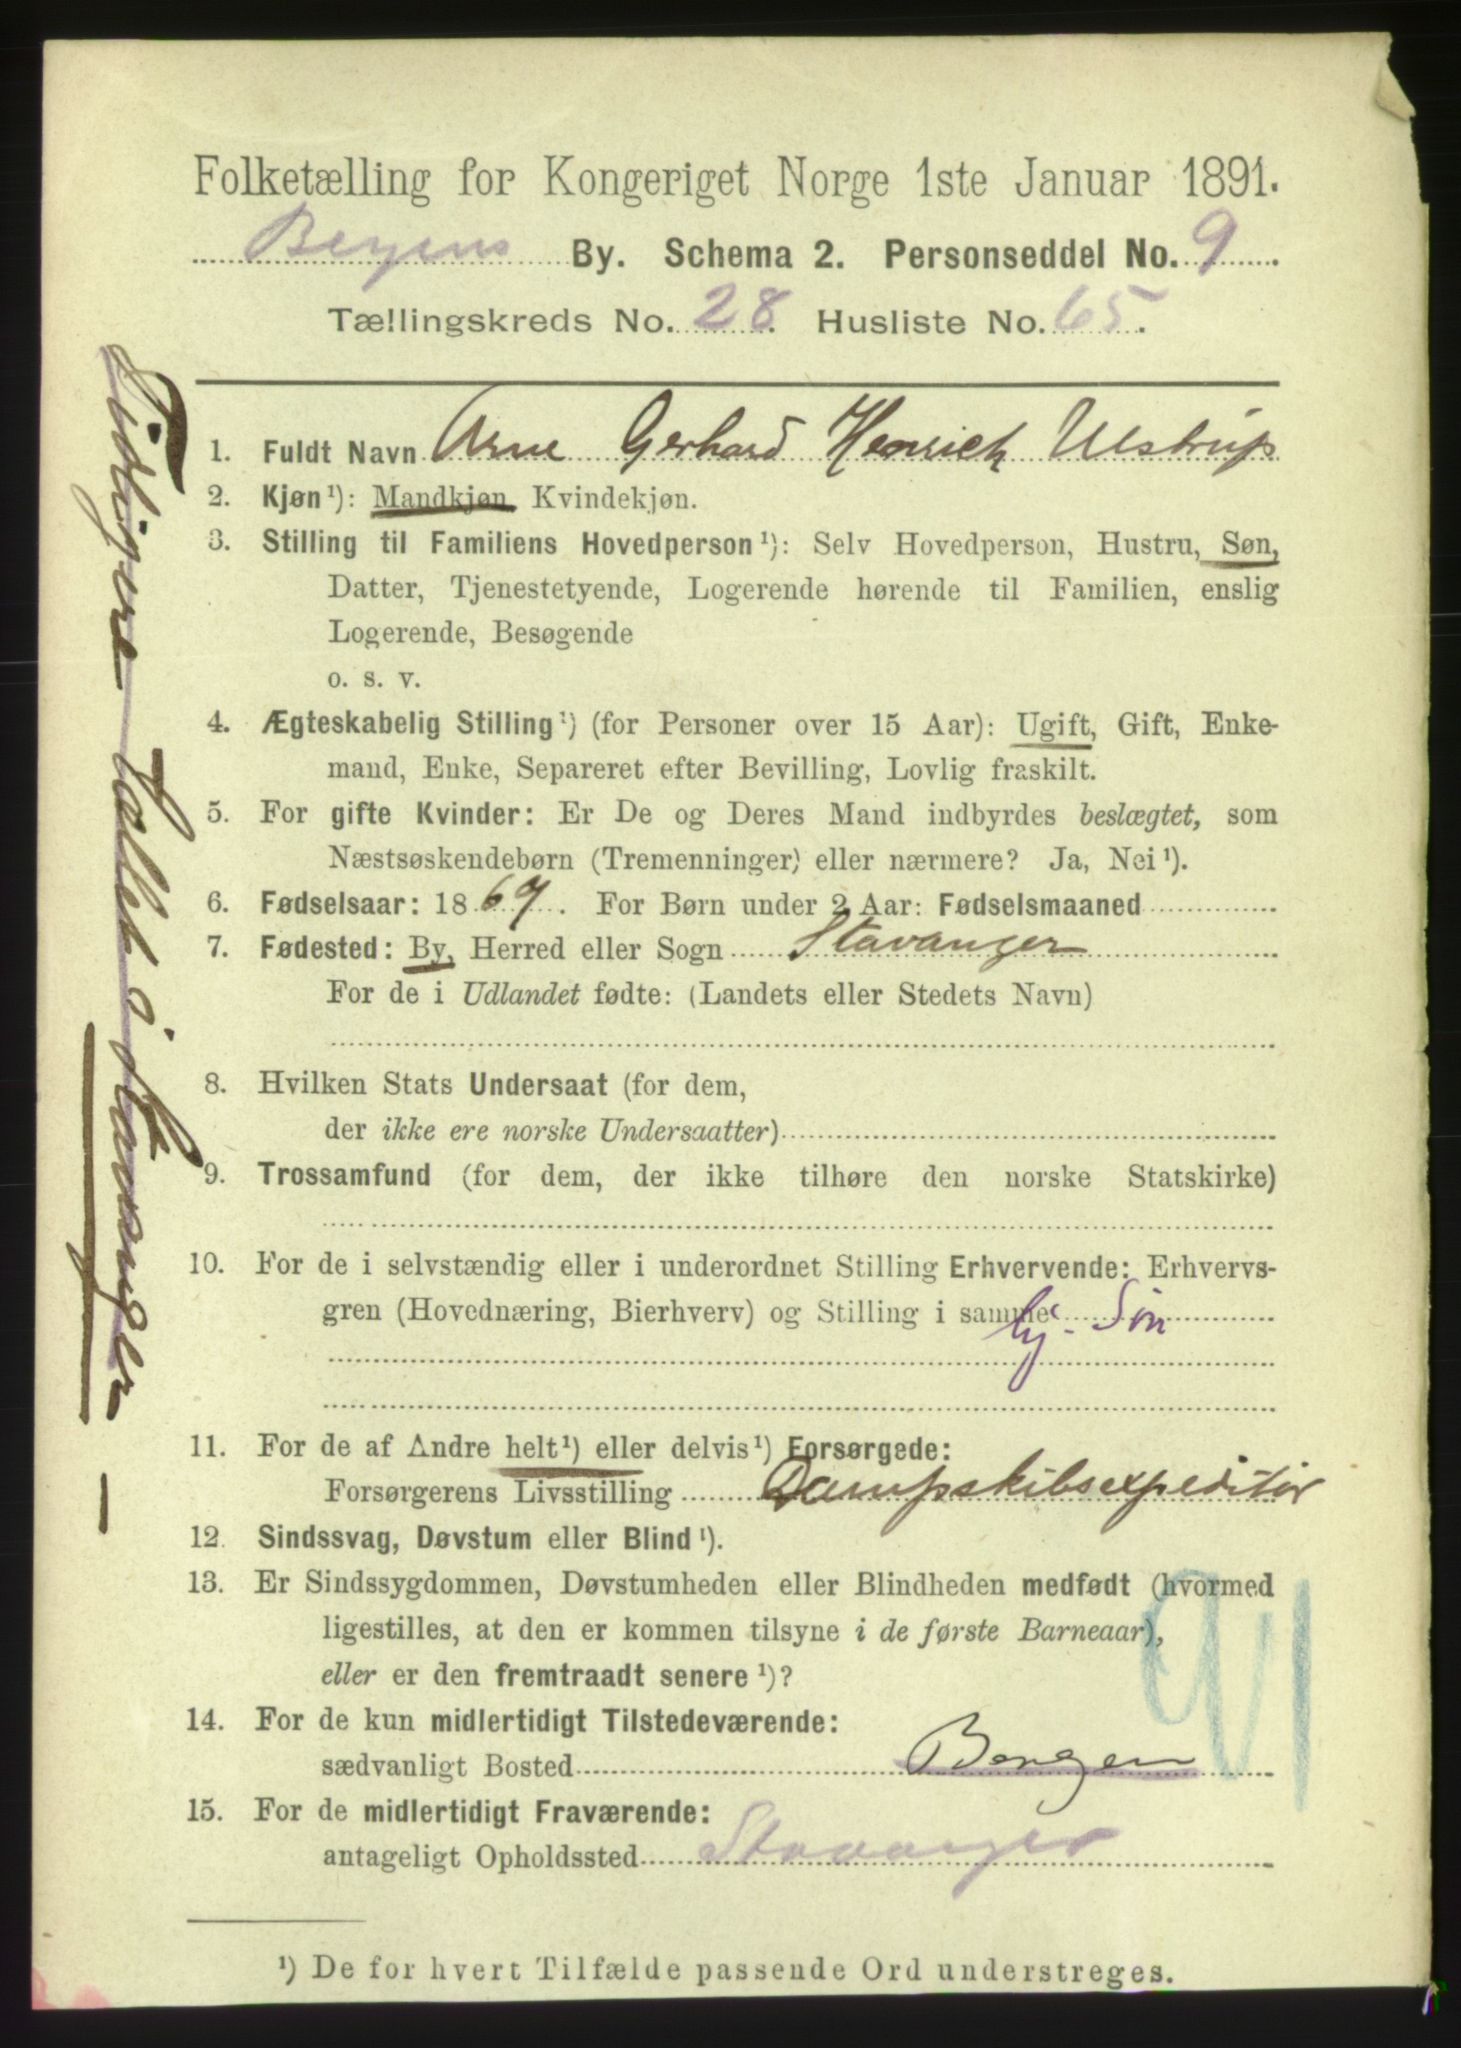 Folketælling for Kongeriget Norge 1ste Januar 1891.
Bergens By. Schema 2. Personseddel No. 9.
Tællingskreds No. 28. Husliste No. 65.
1. Fuldt Navn Arne Gerhard Henrich Ulstrup
2. Kjøn ¹): Mandkjøn, Kvindekjøn.
3. Stilling til Familiens Hovedperson ¹): Selv Hovedperson, Hustru, Søn,
Datter, Tjenestetyende, Logerende hørende til Familien, enslig
Logerende, Besøgende
o. s. v.
4. Ægteskabelig Stilling ¹) (for Personer over 15 Aar): Ugift, Gift, Enke-
mand, Enke, Separeret efter Bevilling, Lovlig fraskilt.
5. For gifte Kvinder: Er De og Deres Mand indbyrdes beslægtet, som
Næstsøskendebørn (Tremenninger) eller nærmere? Ja, Nei ¹).
6. Fødselsaar: 1867. For Børn under 2 Aar: Fødselsmaaned
7. Fødested: By, Herred eller Sogn Stavanger
For de i Udlandet fødte: (Landets eller Stedets Navn)
8. Hvilken Stats Undersaat (for dem,
der ikke ere norske Undersaatter)
9. Trossamfund (for dem, der ikke tilhøre den norske Statskirke)
10. For de i selvstændig eller i underordnet Stilling Erhvervende: Erhvervs-
gren (Hovednæring, Bierhverv) og Stilling i samme hj. Søn
11. For de af Andre helt ¹) eller delvis ¹) Forsørgede:
Forsørgerens Livsstilling Dampskibsexpeditør
12. Sindssvag, Døvstum eller Blind ¹).
13. Er Sindssygdommen, Døvstumheden eller Blindheden medfødt (hvormed
ligestilles, at den er kommen tilsyne i de første Barneaar),
eller er den fremtraadt senere ¹)?
14. For de kun midlertidigt Tilstedeværende:
sædvanligt Bosted Bergen
15. For de midlertidigt Fraværende:
antageligt Opholdssted Stavanger
¹) De for hvert Tilfælde passende Ord understreges.
Tidligere talt i Stavanger
91